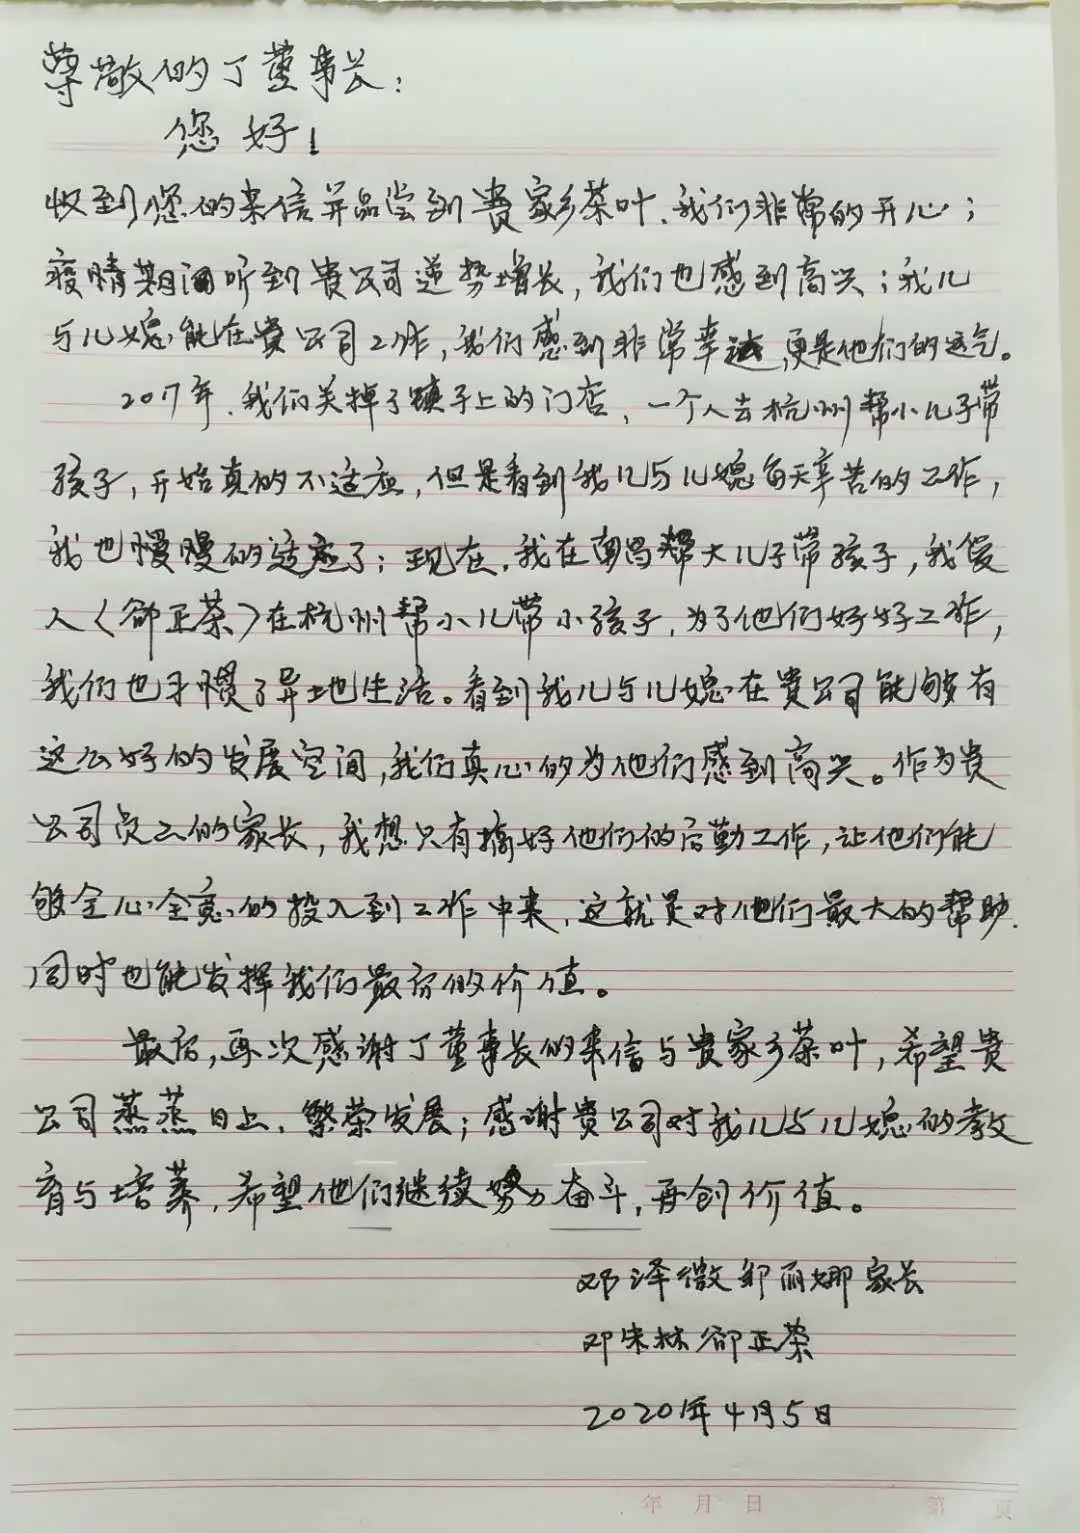 尊敬的丁董事长：
您好！
收到您的来信并品尝到贵家乡茶叶，我们非常的开心；
疫情期间听到贵公司逆势增长，我们也感到高兴；我儿
与儿媳能在贵公司工作，我们感到非常幸运，更是他们的运气。
2017年，我们关掉了镇子上的门店，一个人去杭州帮小儿子带
孩子，开始真的不适应，但是看到我儿与儿媳每天辛苦的工作，
我也慢慢的适应了；现在，我在南昌帮大儿子带孩子，我爱
人（邹正荣）在杭州帮小儿带小孩子，为了他们好好工作，
我们也习惯了异地生活。看到我儿与儿媳在贵公司能够有
这么好的发展空间，我们真心的为他们感到高兴。作为贵
公司员工的家长，我想只有搞好他们的后勤工作，让他们能
够全心全意的投入到工作中来，这就是对他们最大的帮助.
同时也能发挥我们最后的价值。
最后，再次感谢丁董事长的来信与贵家乡茶叶，希望贵
公司蒸蒸日上，繁荣发展；感谢贵公司对我儿与儿媳的教
育与培养，希望他们继续努力奋斗，再创价值。
邓泽微邹丽娜家长
邓朱林邹正荣
2020年4月5日
年 月 日 第 页